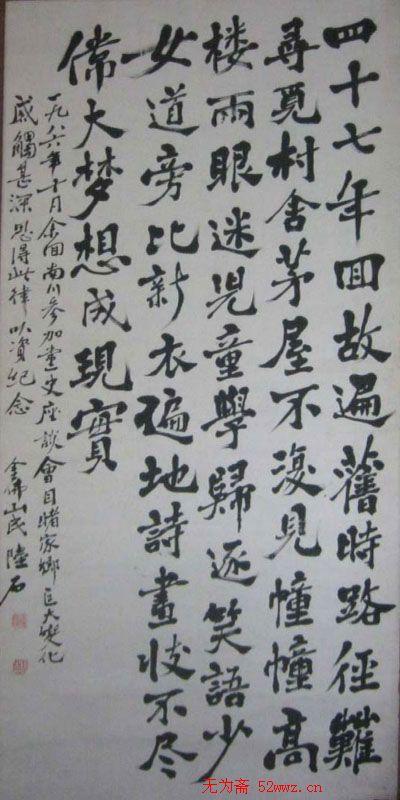 四十七年回故遍舊時路徑難
尋覓村舍茅屋不復見幢幢高
楼兩眼迷児童學歸逐笑語少
女道旁比新衣遍地詩畫不尽
偉大梦想成現實
一九八六年十月余回南川參加党史座談會目睹家鄉巨大变化
感觸甚深得此律以資紀念 金佛山民陸石
无为斋 52wwz.cn